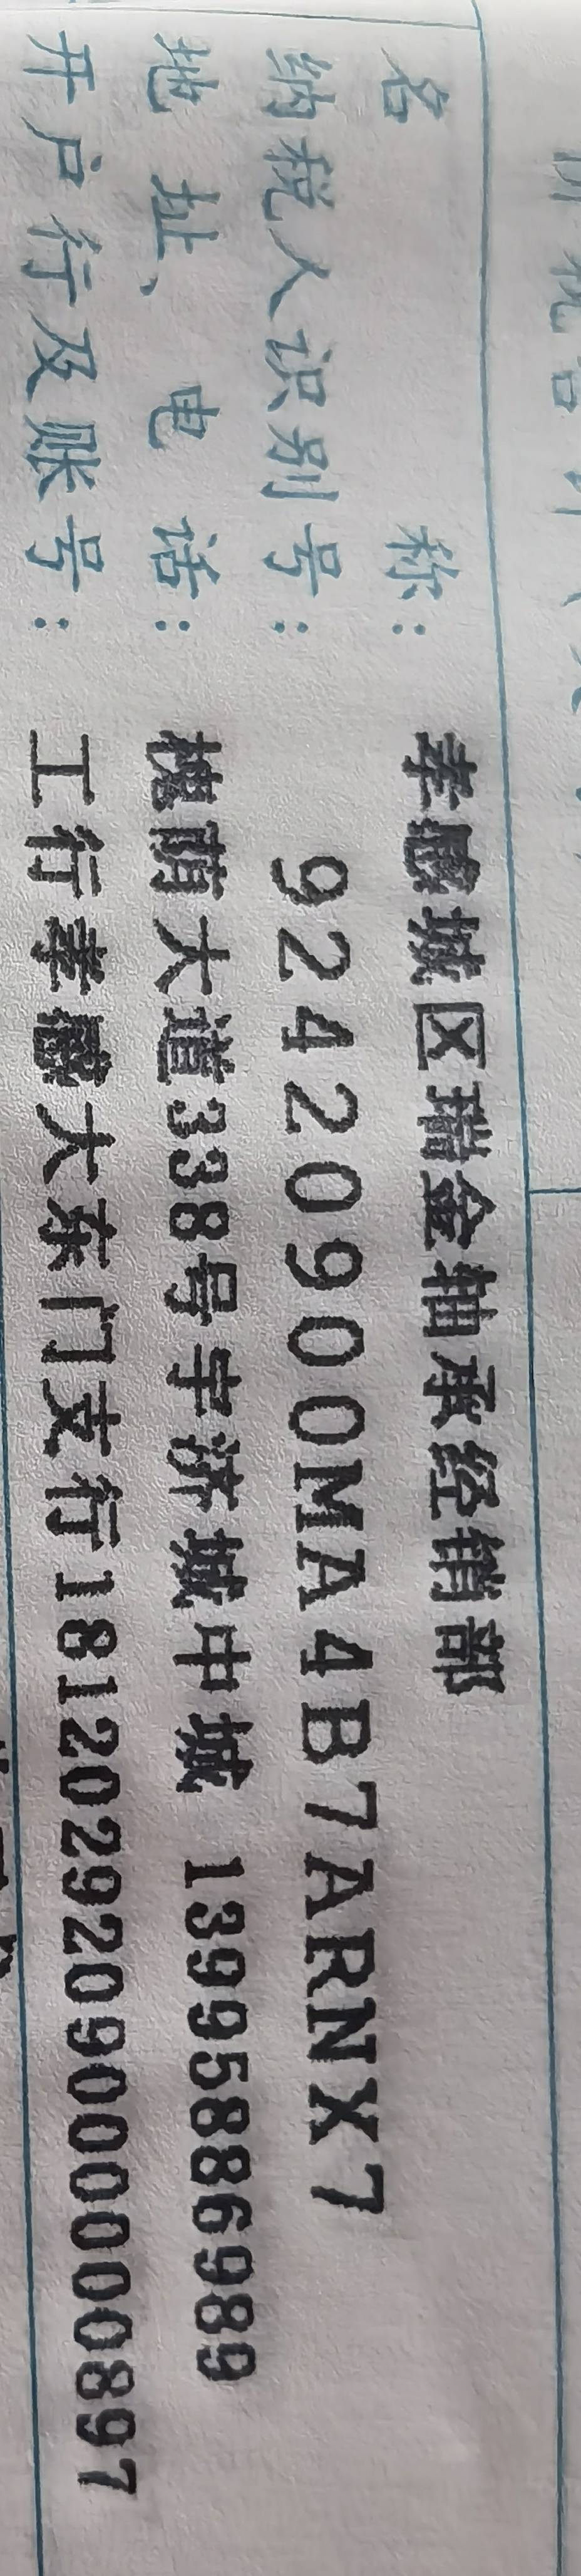 名 称：孝感城区瑞金轴承经销部
纳税人识别号：92420900MA4B7ARNX7
地 址、电 话：槐荫大道338号宇济城中城 13995886989
开户行及账号：工行孝感大东门支行1812029209000000897